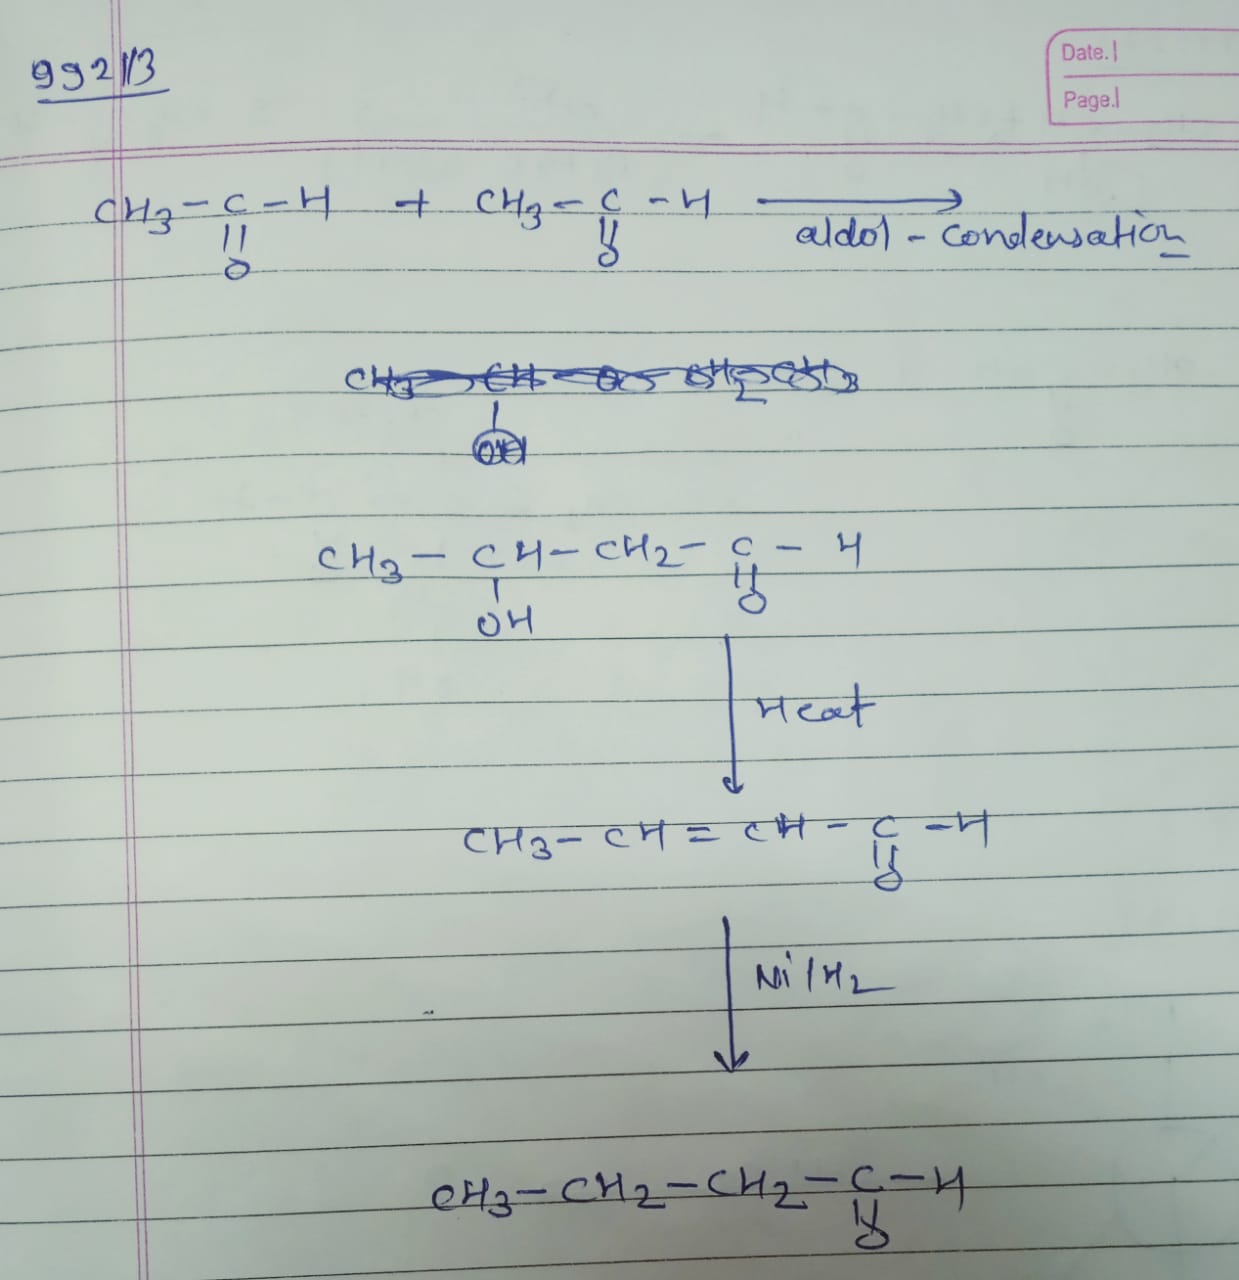 992113
Date.
Page.
CH3 - C - H + CH3 - C - H ⟶
|| ||
O O
aldol - condensation
CH3 - CH - CH2 - C - H
| ||
OH O
Heat
CH3 - CH = CH - C - H
||
O
Ni/H2
CH3 - CH2 - CH2 - C - H
||
O